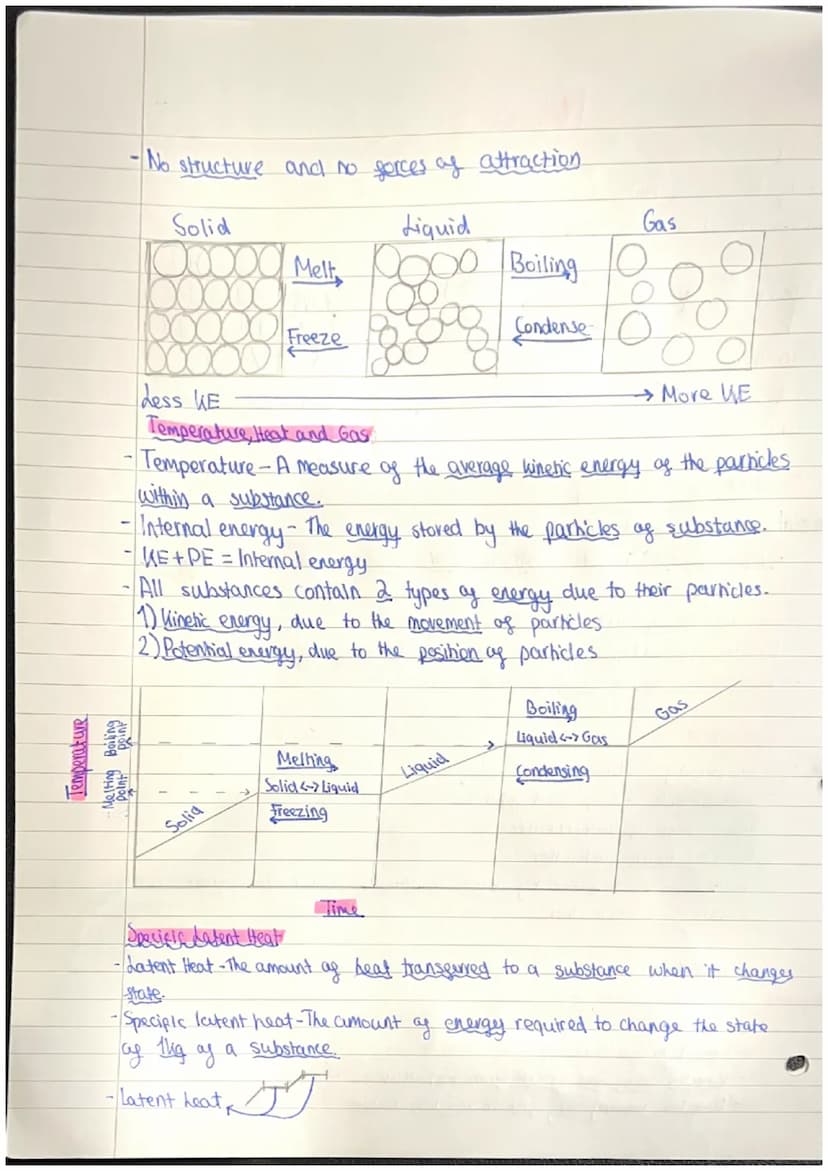 - No structure and no forces of attraction
Solid Liquid Gas
Melt Boiling
Freeze Condense
Less KE → More KE
Temperature, Heat and Gas
- Temperature - A measure of the average kinetic energy of the particles
within a substance.
- Internal energy - The energy stored by the particles of substance.
- KE + PE = Internal energy
- All substances contain 2 types of energy due to their particles.
1) Kinetic energy, due to the movement of particles
2) Potential energy, due to the position of particles
Temperature
Boiling
point
Melting
point
Solid
Melting
Solid <-> Liquid
Freezing
Liquid
Boiling
Liquid <-> Gas
Condensing
Gas
Time
Specific Latent Heat
- Latent Heat - The amount of heat transferred to a substance when it changes
state.
- Specific latent heat - The amount of energy required to change the state
of 1kg of a substance.
- Latent heat